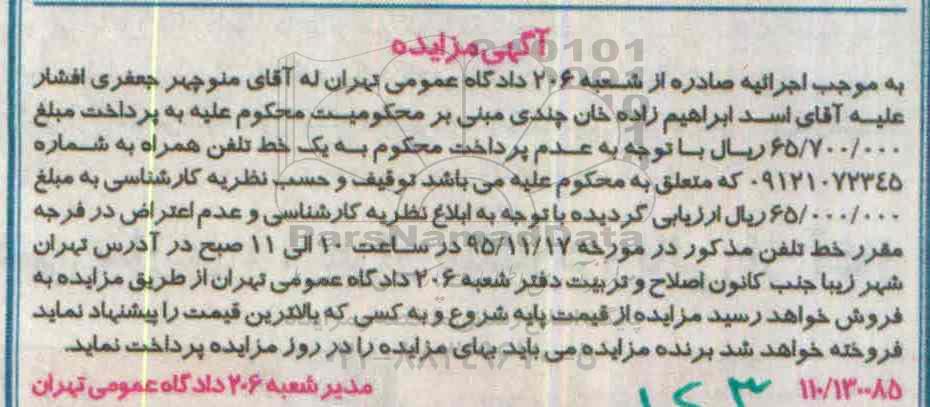 آگهی مزایده
به موجب اجرائیه صادره از شعبه ۲۰۶ دادگاه عمومی تهران له آقای منوچهر جعفری افشار
علیه آقای اسد ابراهیم زاده خان چندی مبنی بر محکومیت محکوم علیه به پرداخت مبلغ
۶۵/۷۰۰/۰۰۰ ریال با توجه به عدم پرداخت محکوم به یک خط تلفن همراه به شماره
۰۹۱۲۱۰۷۲۳٤۵ که متعلق به محکوم علیه می باشد توقیف و حسب نظریه کارشناسی به مبلغ
۶۵/۰۰۰/۰۰۰ ریال ارزیابی گردیده با توجه به ابلاغ نظریه کارشناسی و عدم اعتراض در فرجه
مقرر خط تلفن مذکور در مورخه ۹۵/۱۱/۱۷ در ساعت ۱۰ الی ۱۱ صبح در آدرس تهران
شهر زیبا جنب کانون اصلاح و تربیت دفتر شعبه ۲۰۶ دادگاه عمومی تهران از طریق مزایده به
فروش خواهد رسید مزایده از قیمت پایه شروع و به کسی که بالاترین قیمت را پیشنهاد نماید
فروخته خواهد شد برنده مزایده می باید بهای مزایده را در روز مزایده پرداخت نماید.
۱۱۰/۱۳۰۰۸۵ مدیر شعبه ۲۰۶ دادگاه عمومی تهران
ParsNamadData